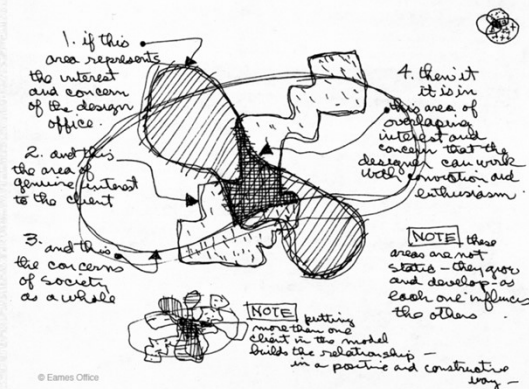 1. if this
area represents
the interest
and concern
of the design
office.
2. and this
the area of
genuine interest
to the client
3. and this
the concerns
of society
as a whole
4. then it
it is in
this area of
overlaping
interest and
concern that the
designer can work
with conviction and
enthusiasm
NOTE these
areas are not
static - they grow
and develop - as
each one influences
the others
NOTE putting
more than one
client in the model
builds the relationship -
in a positive and constructive
way -
© Eames Office